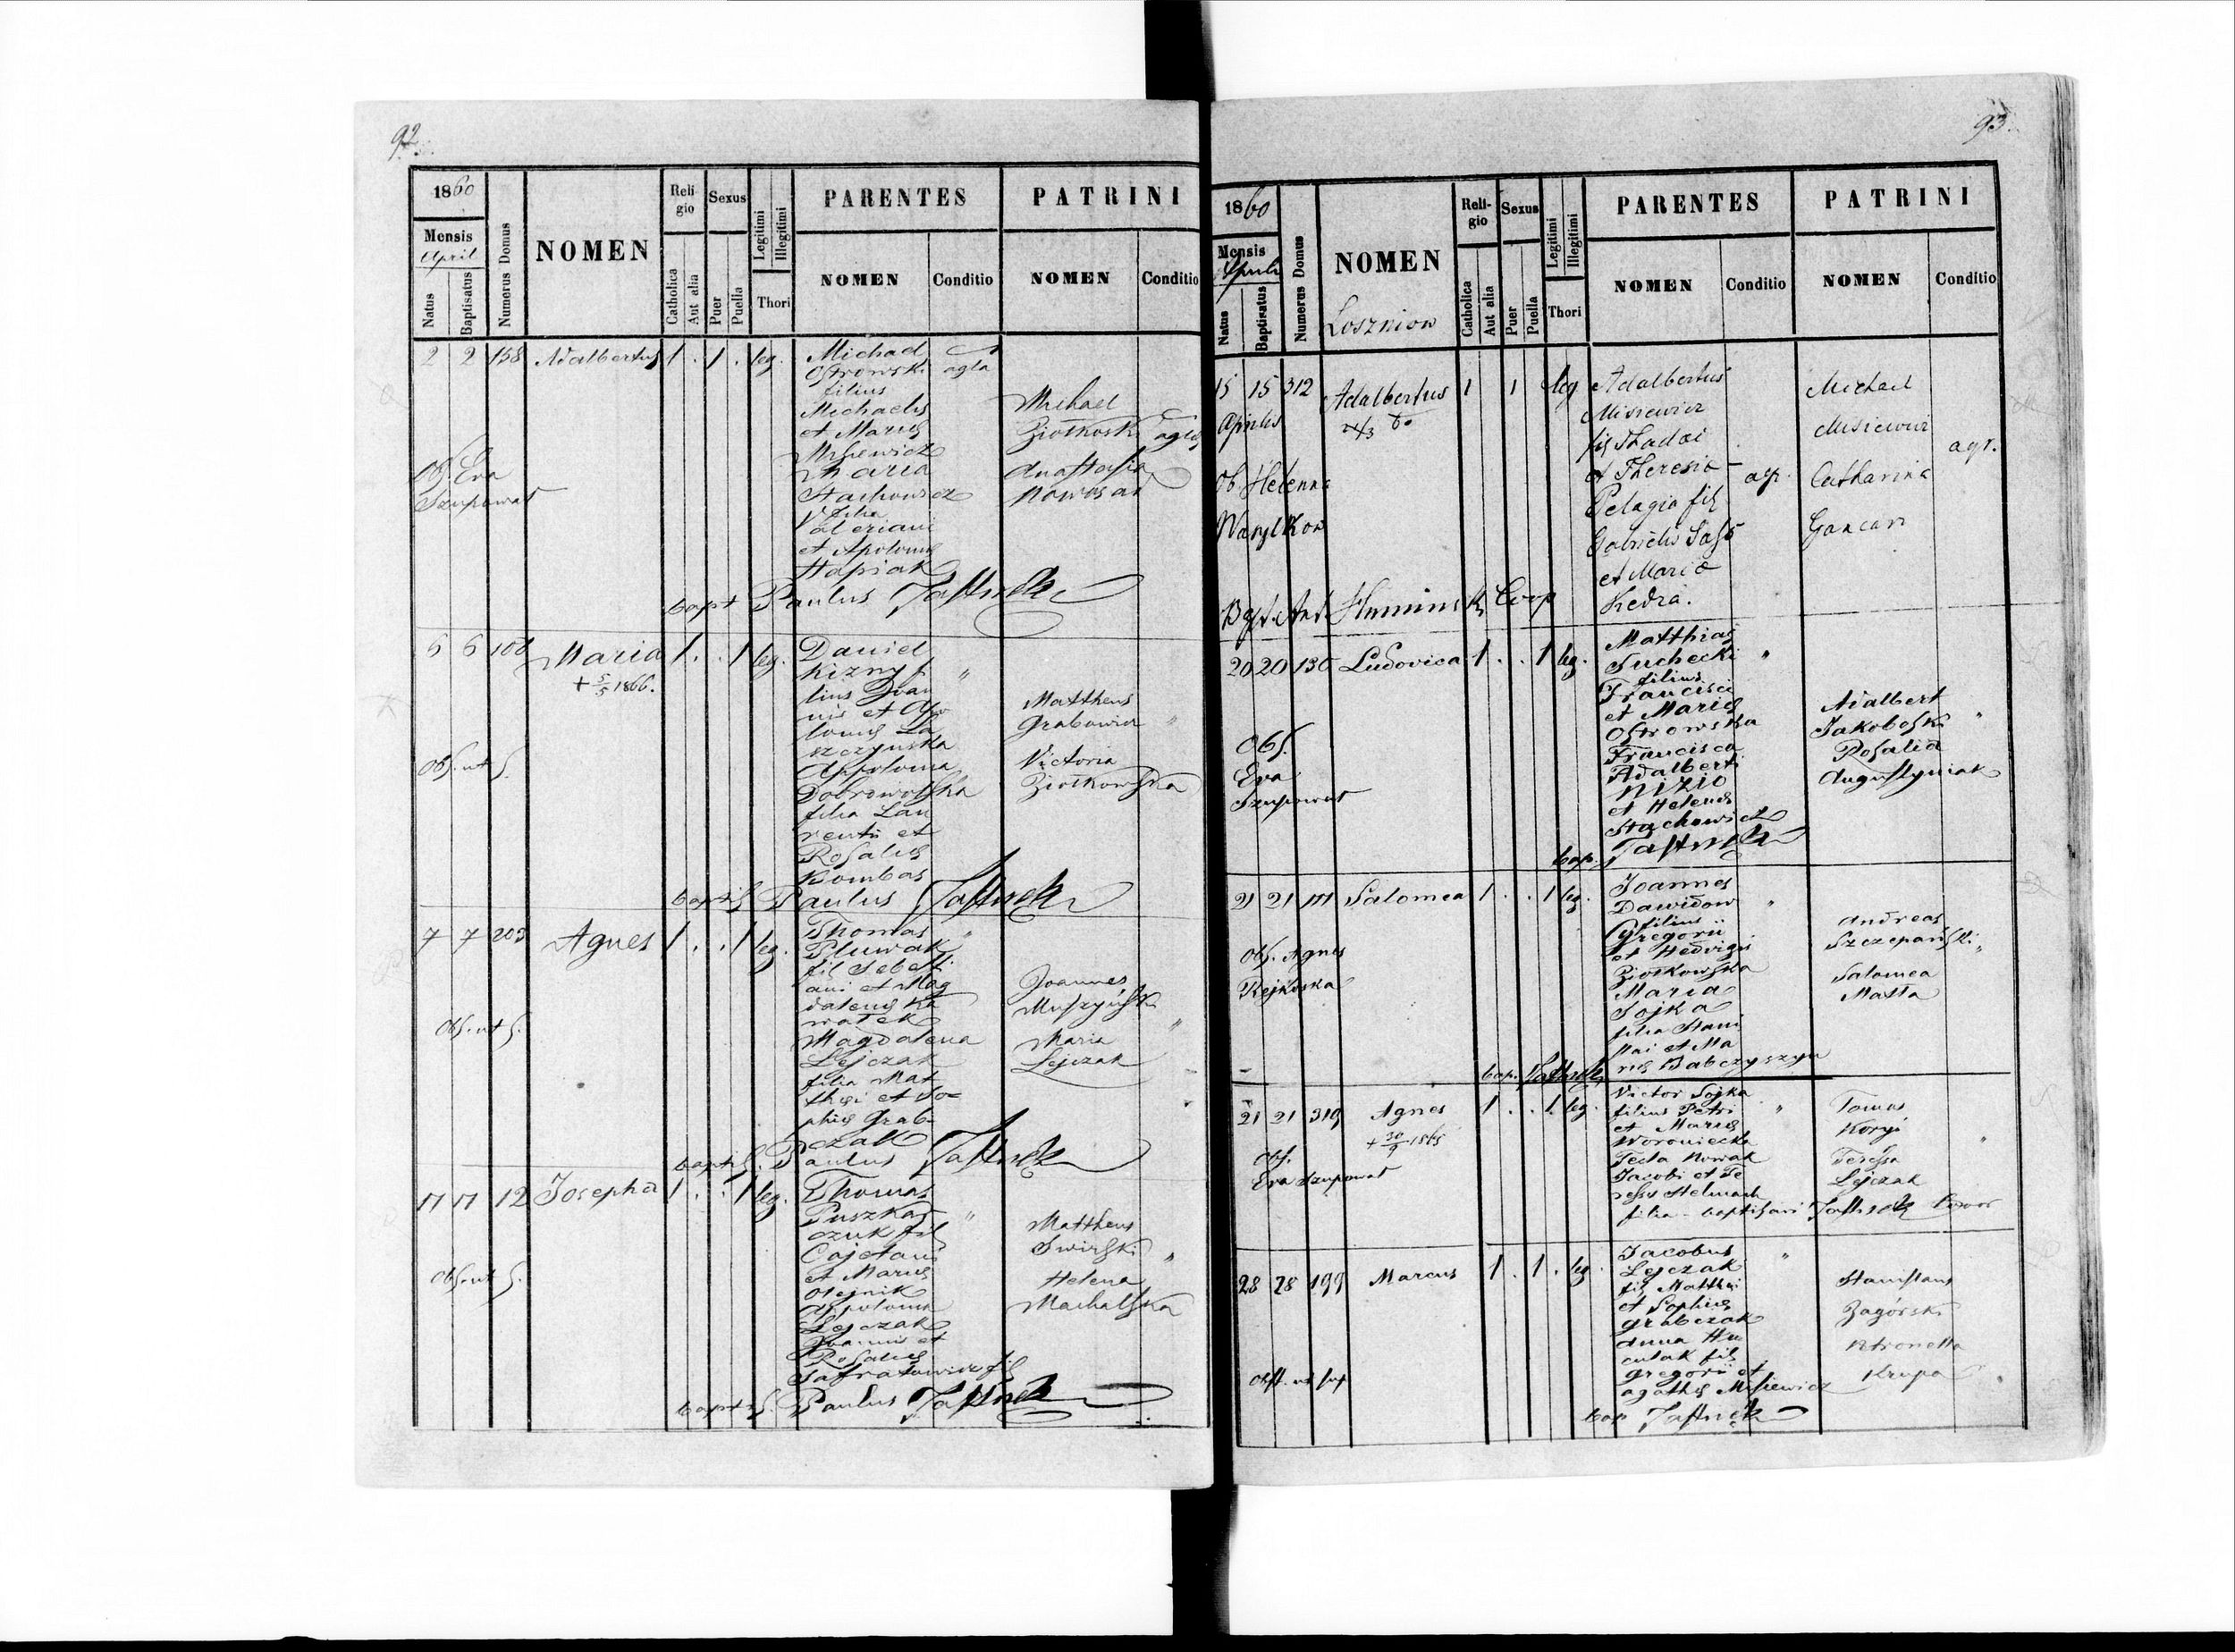 92.
1860
Mensis
April
Natus
Baptisatus
Numerus Domus
NOMEN
Reli-
gio
Catholica
Aut alia
Sexus
Puer
Puella
Legitimi
Illegitimi
Thori
PARENTES
NOMEN
Conditio
PATRINI
NOMEN
Conditio
2 2 158 Adalbertus 1 . 1 . leg.
Michael
Ostrowski
filius
Michaelis
et Maries
Misiewicz
Maria
Stachowicz
filia
Valeriani
et Apolonies
Hapiak
agla
Michael
Ziołkoski
Anastasia
Nowosad
Obs. Eva
Szupowat
bapt Paulus
6 6 108 Maria 1 . . 1 leg.
+ 5/5 1866.
Daniel
Kizny f
lius Joan
nis et Apo
lonies La
szczynska
Appolonia
Dobrowolska
filia Lau
rentii et
Rosalies
Bombas
Mattheus
Grabowicz
Victoria
Ziołkowska
Obs. ut s.
baptis Paulus
7 7 203 Agnes 1 . . 1 leg.
Thomas
Pluwak
fil Sebasti
ani et Mag
dalenes Ka
wałek
Magdalena
Lejczak
filia Mat
thei et So=
phies Grab-
czak
Joannes
Muszyński
Maria
Lejczak
Obs. ut s.
baptis. Paulus
17 17 12 Josepha 1 . . 1 leg.
Thomas
Puszkar
czuk fil
Cajetani
et Maries
Olejnik
Appolonia
Lejczak
Joannis et
Rosalies
Safratowicz fil
Mattheus
Swirski
Helena
Machalska
Obs. ut s.
baptis. Paulus
93.
1860
Mensis
Aprili
Natus
Baptisatus
Numerus Domus
NOMEN
Loszniow
Reli-
gio
Catholica
Aut alia
Sexus
Puer
Puella
Legitimi
Illegitimi
Thori
PARENTES
NOMEN
Conditio
PATRINI
NOMEN
Conditio
15 15 312 Adalbertus 1 1 leg
Aprilis
Adalbertus
Misiewicz
fil Thadei
et Theresia
Pelagia fil
Gabrielis Sass
et Maria
Kedra.
agr.
Michael
Misiewicz
Catharina
Gancarz
agr.
Ob. Helena
Wasylkow
Bapt. Ant. Huminski Coop
20 20 136 Ludovica 1 . . 1 leg.
Matthias
Suchecki
filius
Francisci
et Maries
Ostrowska
Francisca
Adalberti
Nizio
et Helenes
Stachowicz
Adalbert
Jakoboski
Rosalia
Augustyniak
Obs.
Eva
Szupowat
bap.
21 21 111 Salomea 1 . . 1 leg.
Joannes
Dawidow
filius
Gregorii
et Hedvigis
Ziołkowska
Maria
Sojka
filia Stanis
lai et Ma
ries Babczyszyn
Andreas
Szczepański
Salomea
Matla
Obs. Agnes
Rejkoska
bap.
21 21 319 Agnes 1 . . 1 leg.
+ 30/9 1865
Victor Sojka
filius Petri
et Maries
Woroniecka
Tecla Nowak
Jacobi et Te
resies Stelmach
filia - baptisavi
Tomas
Koryś
Teressa
Lejczak
Obs.
Eva Szupowat
28 28 199 Marcus 1 . 1 . leg.
Jacobus
Lejczak
fil Matthei
et Sophies
Grabczak
Anna Hu
culak fil
Gregorii et
Agathes Misiewicz
Stanislaus
Zagórski
Petronella
Krupa
Obst. ut sup
bap